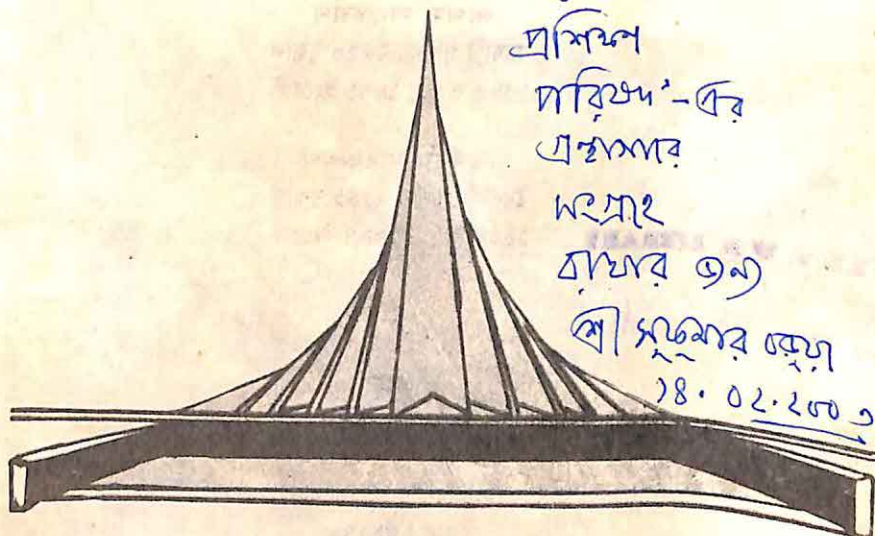 প্রশিক্ষণ
পরিষদ'-এর
গ্রন্থাগারে
সংগ্রহে
রাখার জন্য
শ্রী সুকুমার বড়ুয়া
১৪.০২.২০০১